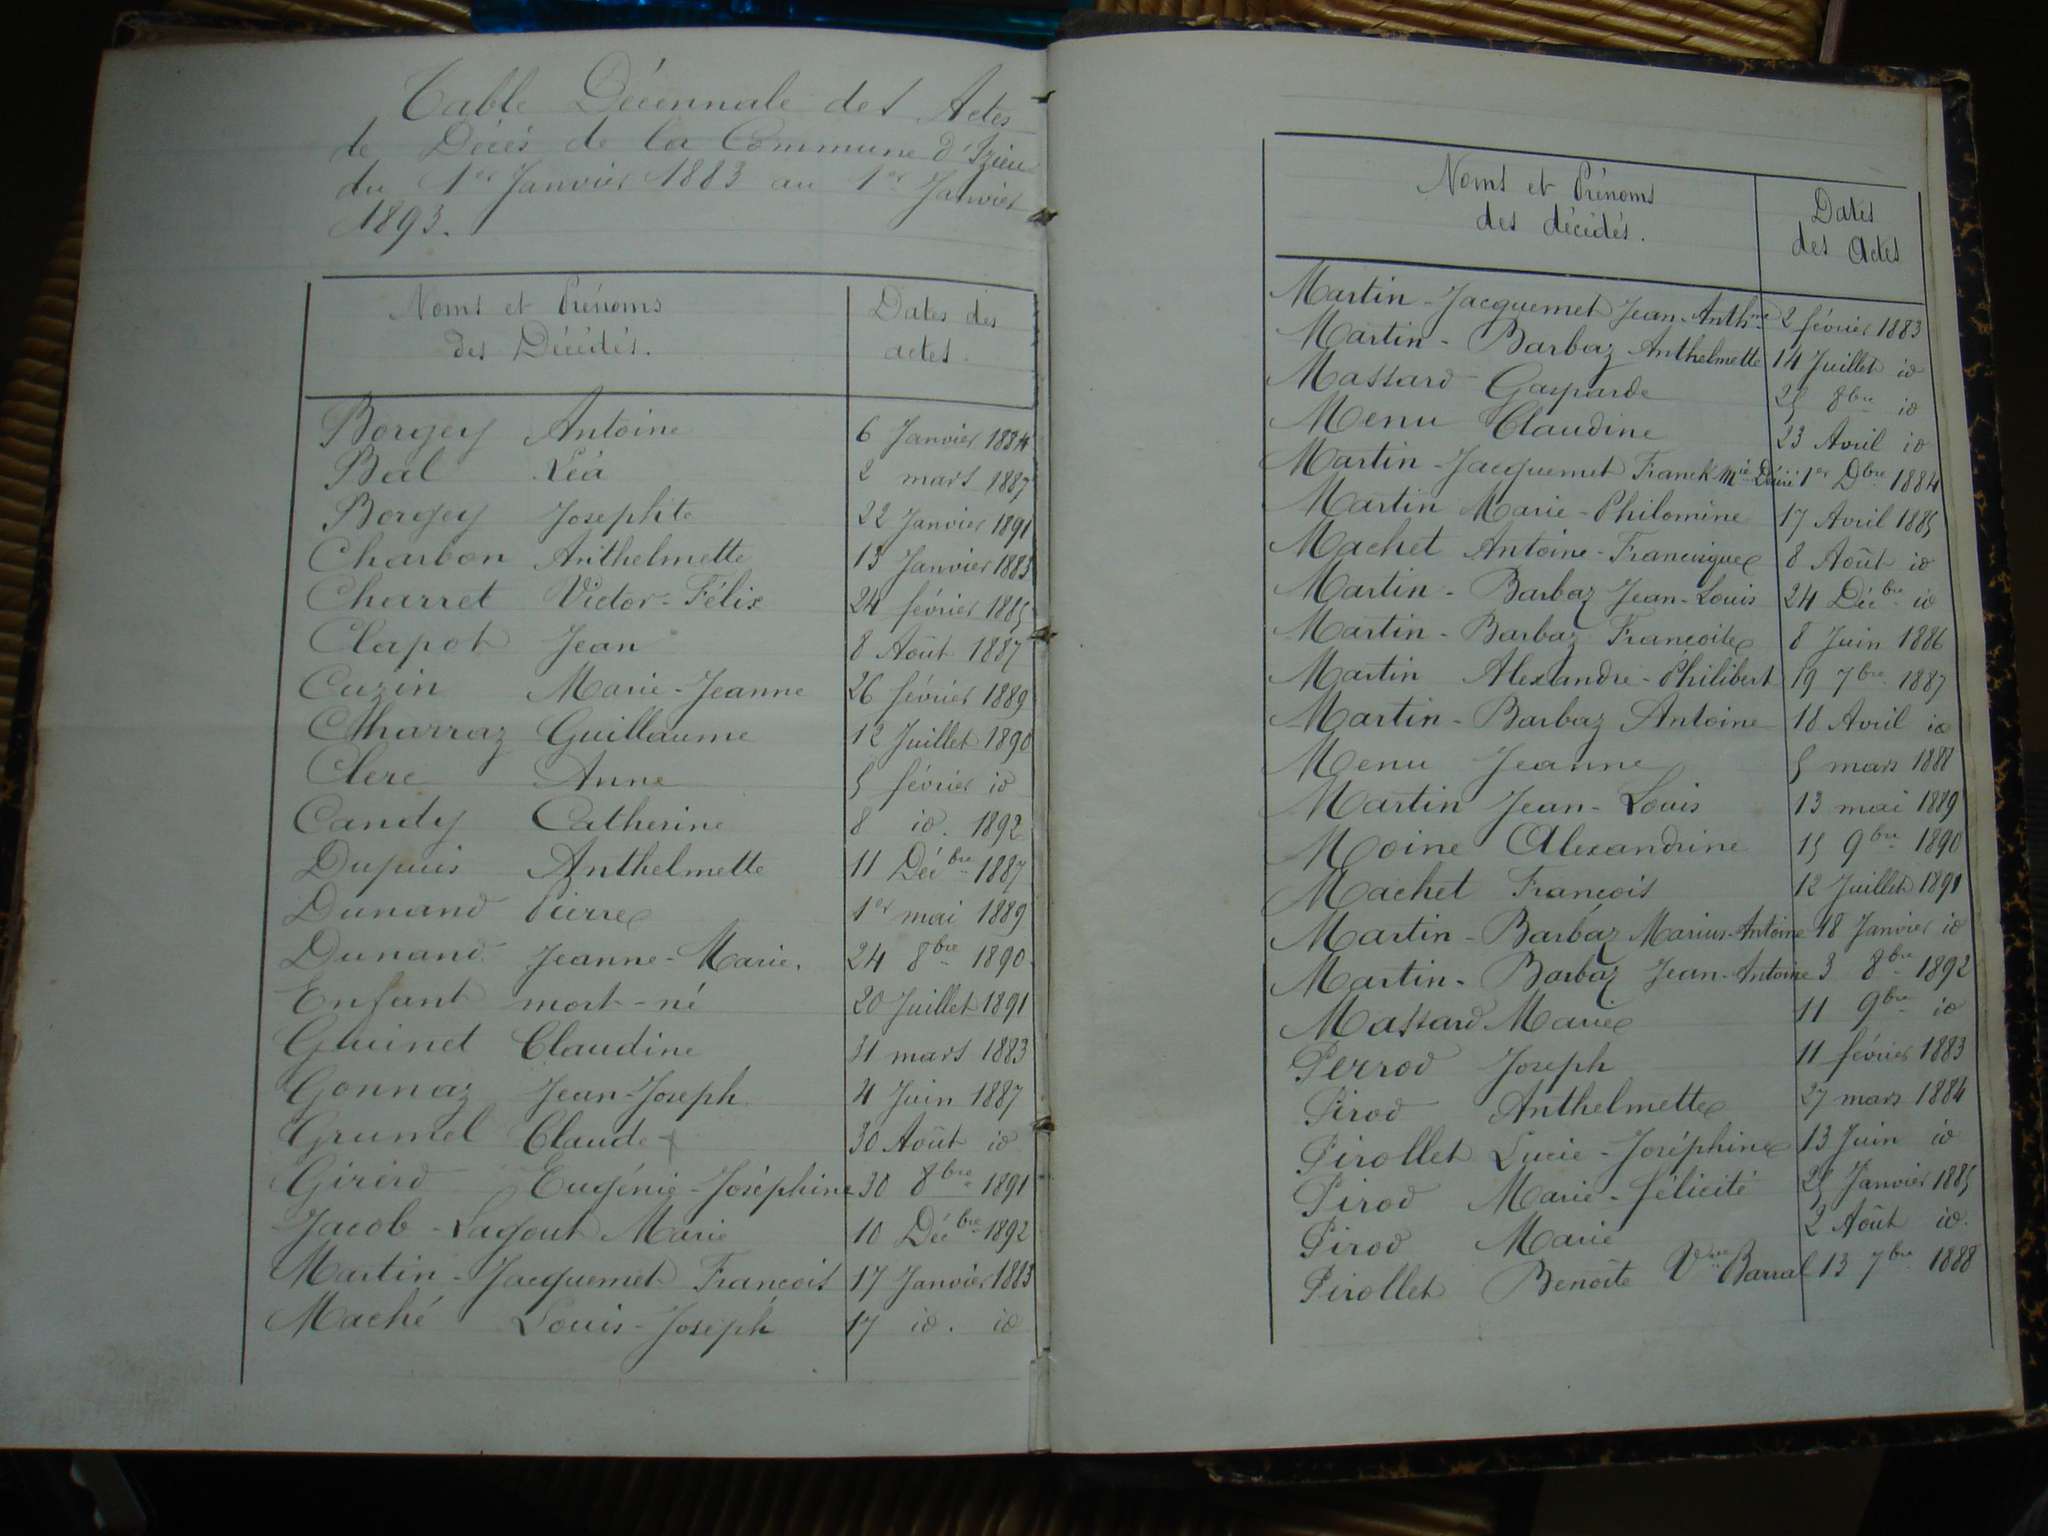 Table Décennale des Actes
de Décès de la Commune d'Izieu
du 1er Janvier 1883 au 1er Janvier
1893.
Noms et Prénoms
des Décédés.
Dates des
actes.
Borgey Antoine 6 Janvier 1884
Bal Léa 2 mars 1887
Borgey Josephte 22 Janvier 1891
Charbon Anthelmette 13 Janvier 1883
Charret Victor-Félix 24 février 1885
Clapot Jean 8 Août 1887
Cuzin Marie-Jeanne 26 février 1889
Charraz Guillaume 12 Juillet 1890
Clerc Anne 5 février id
Candy Catherine 8 id. 1892
Dupuis Anthelmette 11 Décbre 1887
Dunand Pierre 1er mai 1889
Dunand Jeanne-Marie. 24 8bre 1890
Enfant mort-né 20 Juillet 1891
Guinet Claudine 31 mars 1883
Gonnaz Jean-Joseph 4 Juin 1887
Grumel Claude 30 Août id
Girerd Eugénie-Joséphine 30 8bre 1891
Jacob-Lagout Marie 10 Décbre 1892
Martin-Jacquemet François 17 Janvier 1883
Maché Louis-Joseph 17 id. id
Noms et Prénoms
des décédés.
Dates
des Actes
Martin-Jacquemet Jean-Anthme 2 février 1883
Martin-Barbaz Anthelmette 14 Juillet id
Massard Gasparde 25 8bre id
Menu Claudine 23 Avril id
Martin-Jacquemet Franck-Mie-Désiré 1er Dbre 1884
Martin Marie-Philomine 17 Avril 1885
Machet Antoine-Francisque 8 Août id
Martin-Barbaz Jean-Louis 24 Décbre id
Martin-Barbaz Françoise 8 Juin 1886
Martin Alexandre-Philibert 19 7bre 1887
Martin-Barbaz Antoine 18 Avril id
Menu Jeanne 5 mars 1888
Martin Jean-Louis 13 mai 1889
Moine Alexandrine 15 9bre 1890
Machet François 12 Juillet 1891
Martin-Barbaz Marius-Antoine 18 Janvier id
Martin-Barbaz Jean-Antoine 3 8bre 1892
Massard Marie 11 9bre id
Perrod Joseph 11 février 1883
Pirod Anthelmette 27 mars 1884
Pirollet Lucie-Joséphine 13 Juin id
Pirod Marie-félicité 25 Janvier 1885
Pirod Marie 2 Août id.
Pirollet Benoîte Vve Barral 13 7bre 1888